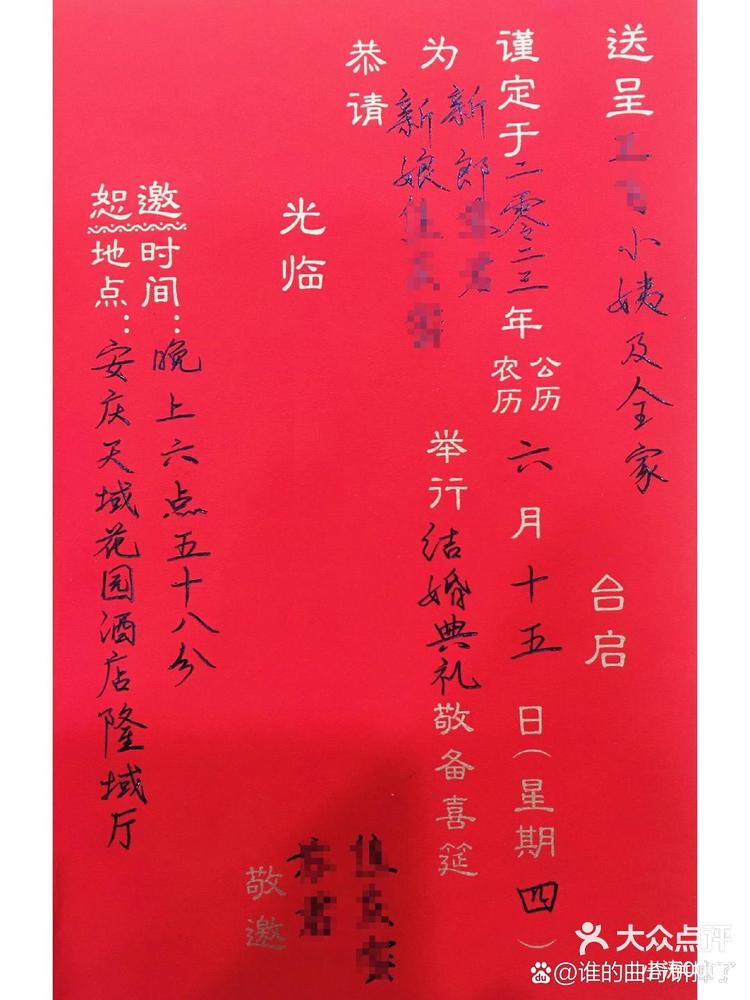 送呈 小姨及全家 台启
谨定于二零二三年 公历 农历 六月十五日(星期四)
为 新郎
新娘
举行结婚典礼 敬备喜筵
恭请
光临
敬邀
恕邀
时间:晚上六点五十八分
地点:安庆天域花园酒店隆域厅
大众点评
@谁的曲奇饼掉了